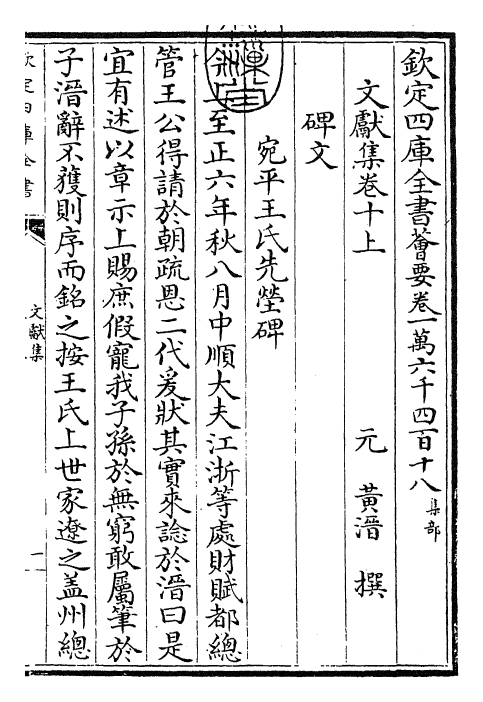 欽定四庫全書薈要卷一萬六千四百十八集部
文獻集卷十上
元 黃溍 撰
碑文
宛平王氏先塋碑
至正六年秋八月中順大夫江浙等處財賦都總
管王公得請於朝疏恩二代爰狀其實來諗於溍曰是
宜有述以章示上賜庶假寵我子孫於無窮敢屬筆於
子溍辭不獲則序而銘之按王氏上世家遼之盖州總
欽定四庫全書
文獻集
一